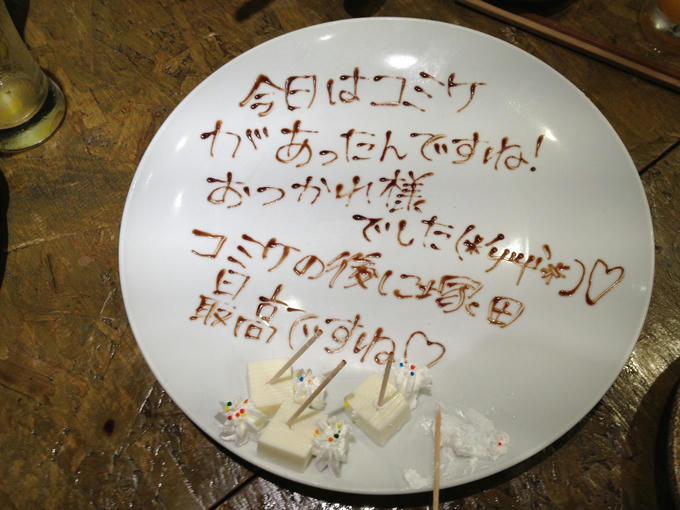 今日はコミケ
があったんですね!
おつかれ様
でした(*´艸`*)♡
コミケの後に塚田
最高ですね♡